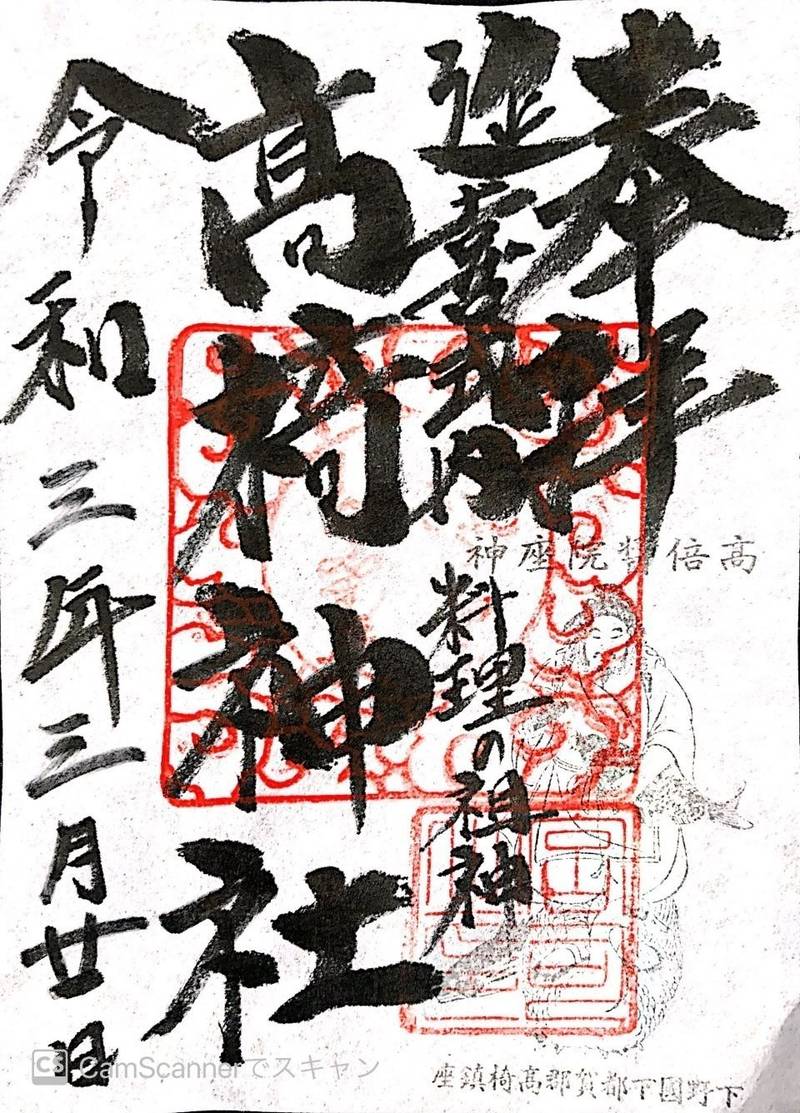 奉拝
延喜式内
料理の祖神
高椅神社
令和三年三月廿日
高倍 院座神
下野國下都賀郡高椅鎮座
CS CamScannerでスキャン